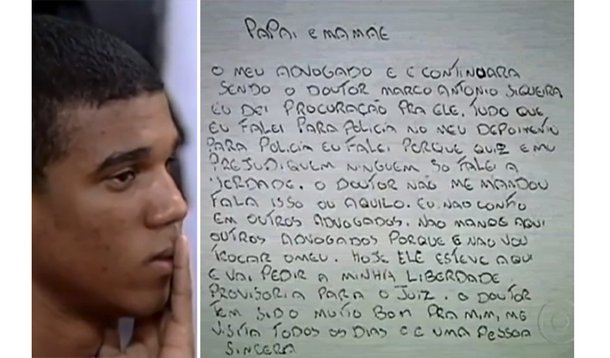 PAPAI E MAMÃE
O MEU ADVOGADO E E CONTINUARA
SENDO O DOUTOR MARCO ANTONIO SIQUEIRA
EU DEI PROCURAÇÃO PRA ELE, TUDO QUE
EU FALEI PARA POLICIA NO MEU DEPOIMENTO
PARA POLICIA EU FALEI PORQUE QUIZ E MIM
NINGUEM SO FALEI A
VERDADE. O DOUTOR NÃO ME MANDOU
FALA ISSO OU AQUILO. EU NÃO CONFIO
EM OUTROS ADVOGADOS. NÃO MANDE AQUI
OUTROS ADVOGADOS PORQUE E NÃO VOU
TROCAR O MEU. HOJE ELE ESTEVE AQUI
E VAI PEDIR A MINHA LIBERDADE
PROVISORIA PARA O JUIZ. O DOUTOR
TEM SIDO MUITO BOM PRA MIM, ME
VISITA TODOS OS DIAS E E UMA PESSOA
SINCERA